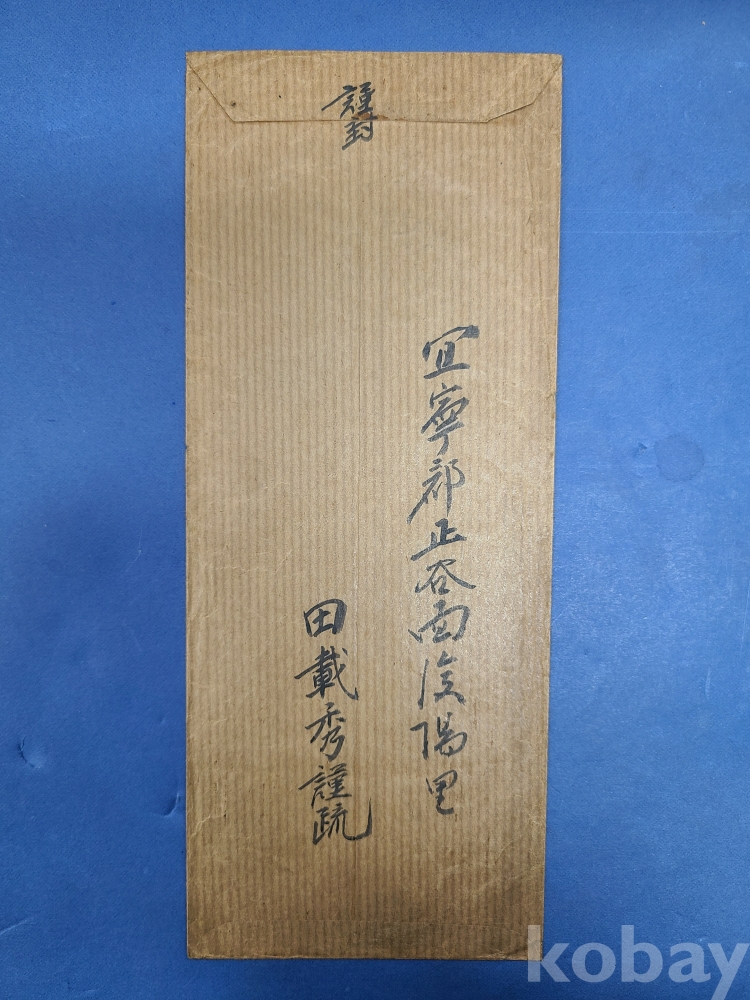 謹封
宜寧郡正谷面陽里
田載秀謹疏
kobay